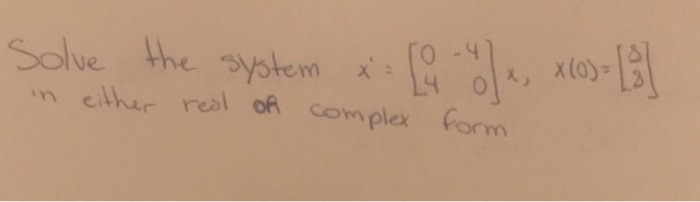 Solve the system x' = [0 -4; 4 0] x, x(0) = [8; 8]
in either real OR complex form